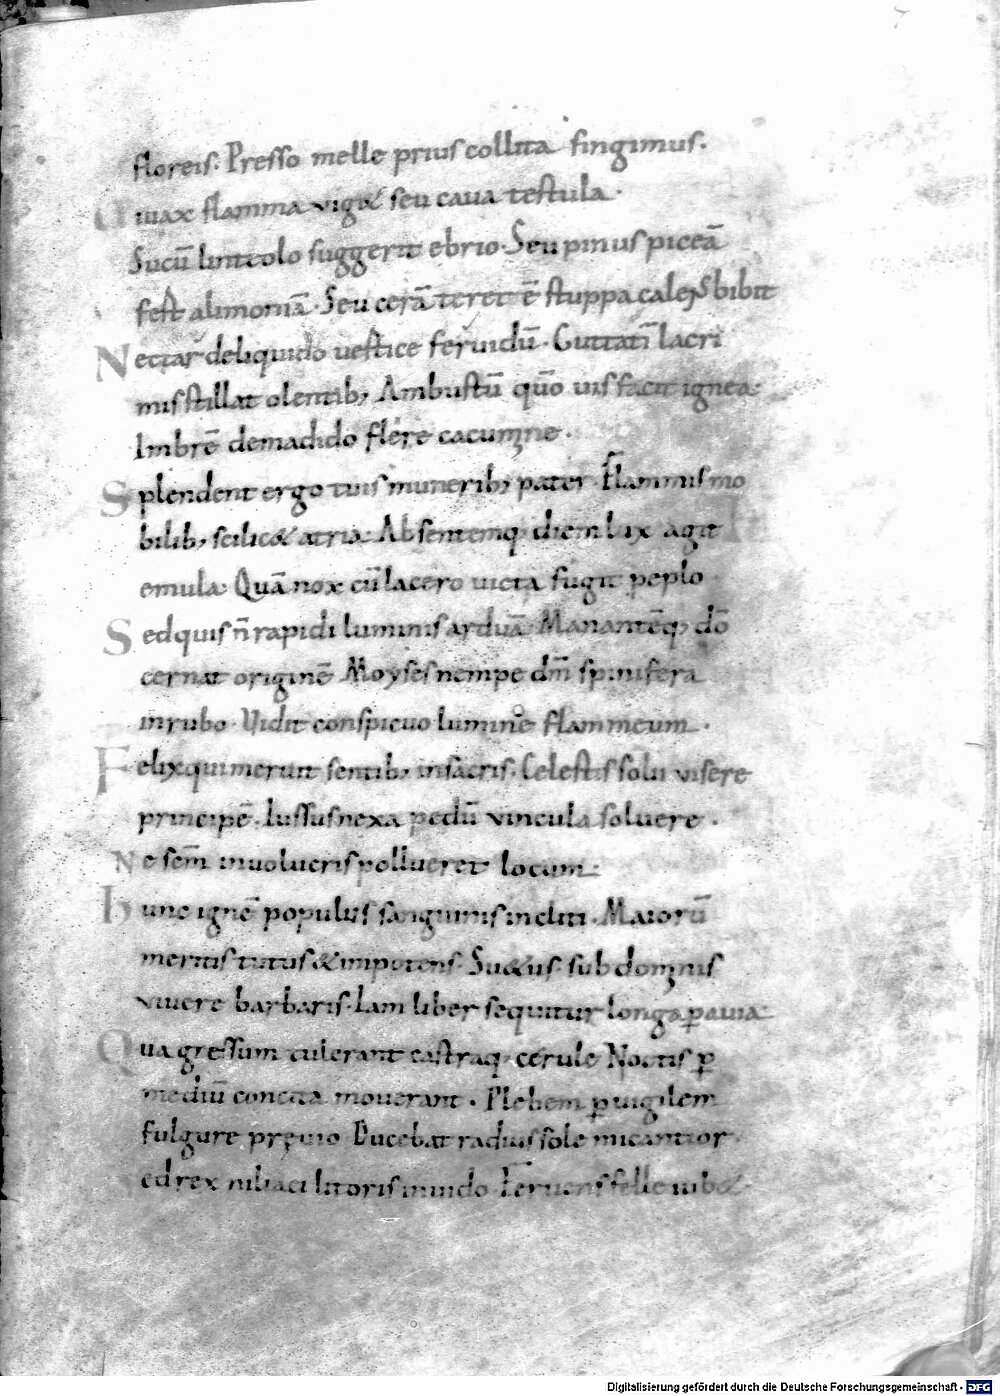 floreis. Presso melle prius collita fingimus.
Uiuax flamma uig& seu caua testula.
Sucū linteolo suggerit ebrio. Seu pinus piceā
fert alimoniā. Seu cerā teret ē stuppa calens bibit
Nectar deliquido uertice feruidū. Guttatī lacri
mis stillat olentib; Ambustū quō uis facit ignea.
Imbrē demadido flere cacumne.
Splendent ergo tuis munerib; pater. Flammis mo
bilib; scilic& atria. Absentemq; diem lux agit
emula. Quā nox cū lacero uicta fugit peplo
Sed quis n̄ rapidi luminis arduā. Manantēq; dō
cernat originē. Moyses nempe dm̄ spinifera
inrubo. Uidit conspicuo lumine flammeum.
Felix qui meruit sentib; insacris. Celestis solii uisere
principē. Iussus nexa pedū uincula soluere.
Ne scm̄ inuolucris pollueret locum.
Hunc ignē populus sanguinis incliti. Maiorū
meritis tutus & impotens. Su&us sub domnis
uiuere barbaris. Iam liber sequitur longa p auia.
Qua gressum tulerant castraq; cerule Noctis p
mediū concita mouerant. Plebem puigilem
fulgure pręuio Ducebat radius sole micantior
ed rex niliaci litoris inuido. Feruens felle iub&
Digitalisierung gefördert durch die Deutsche Forschungsgemeinschaft - DFG